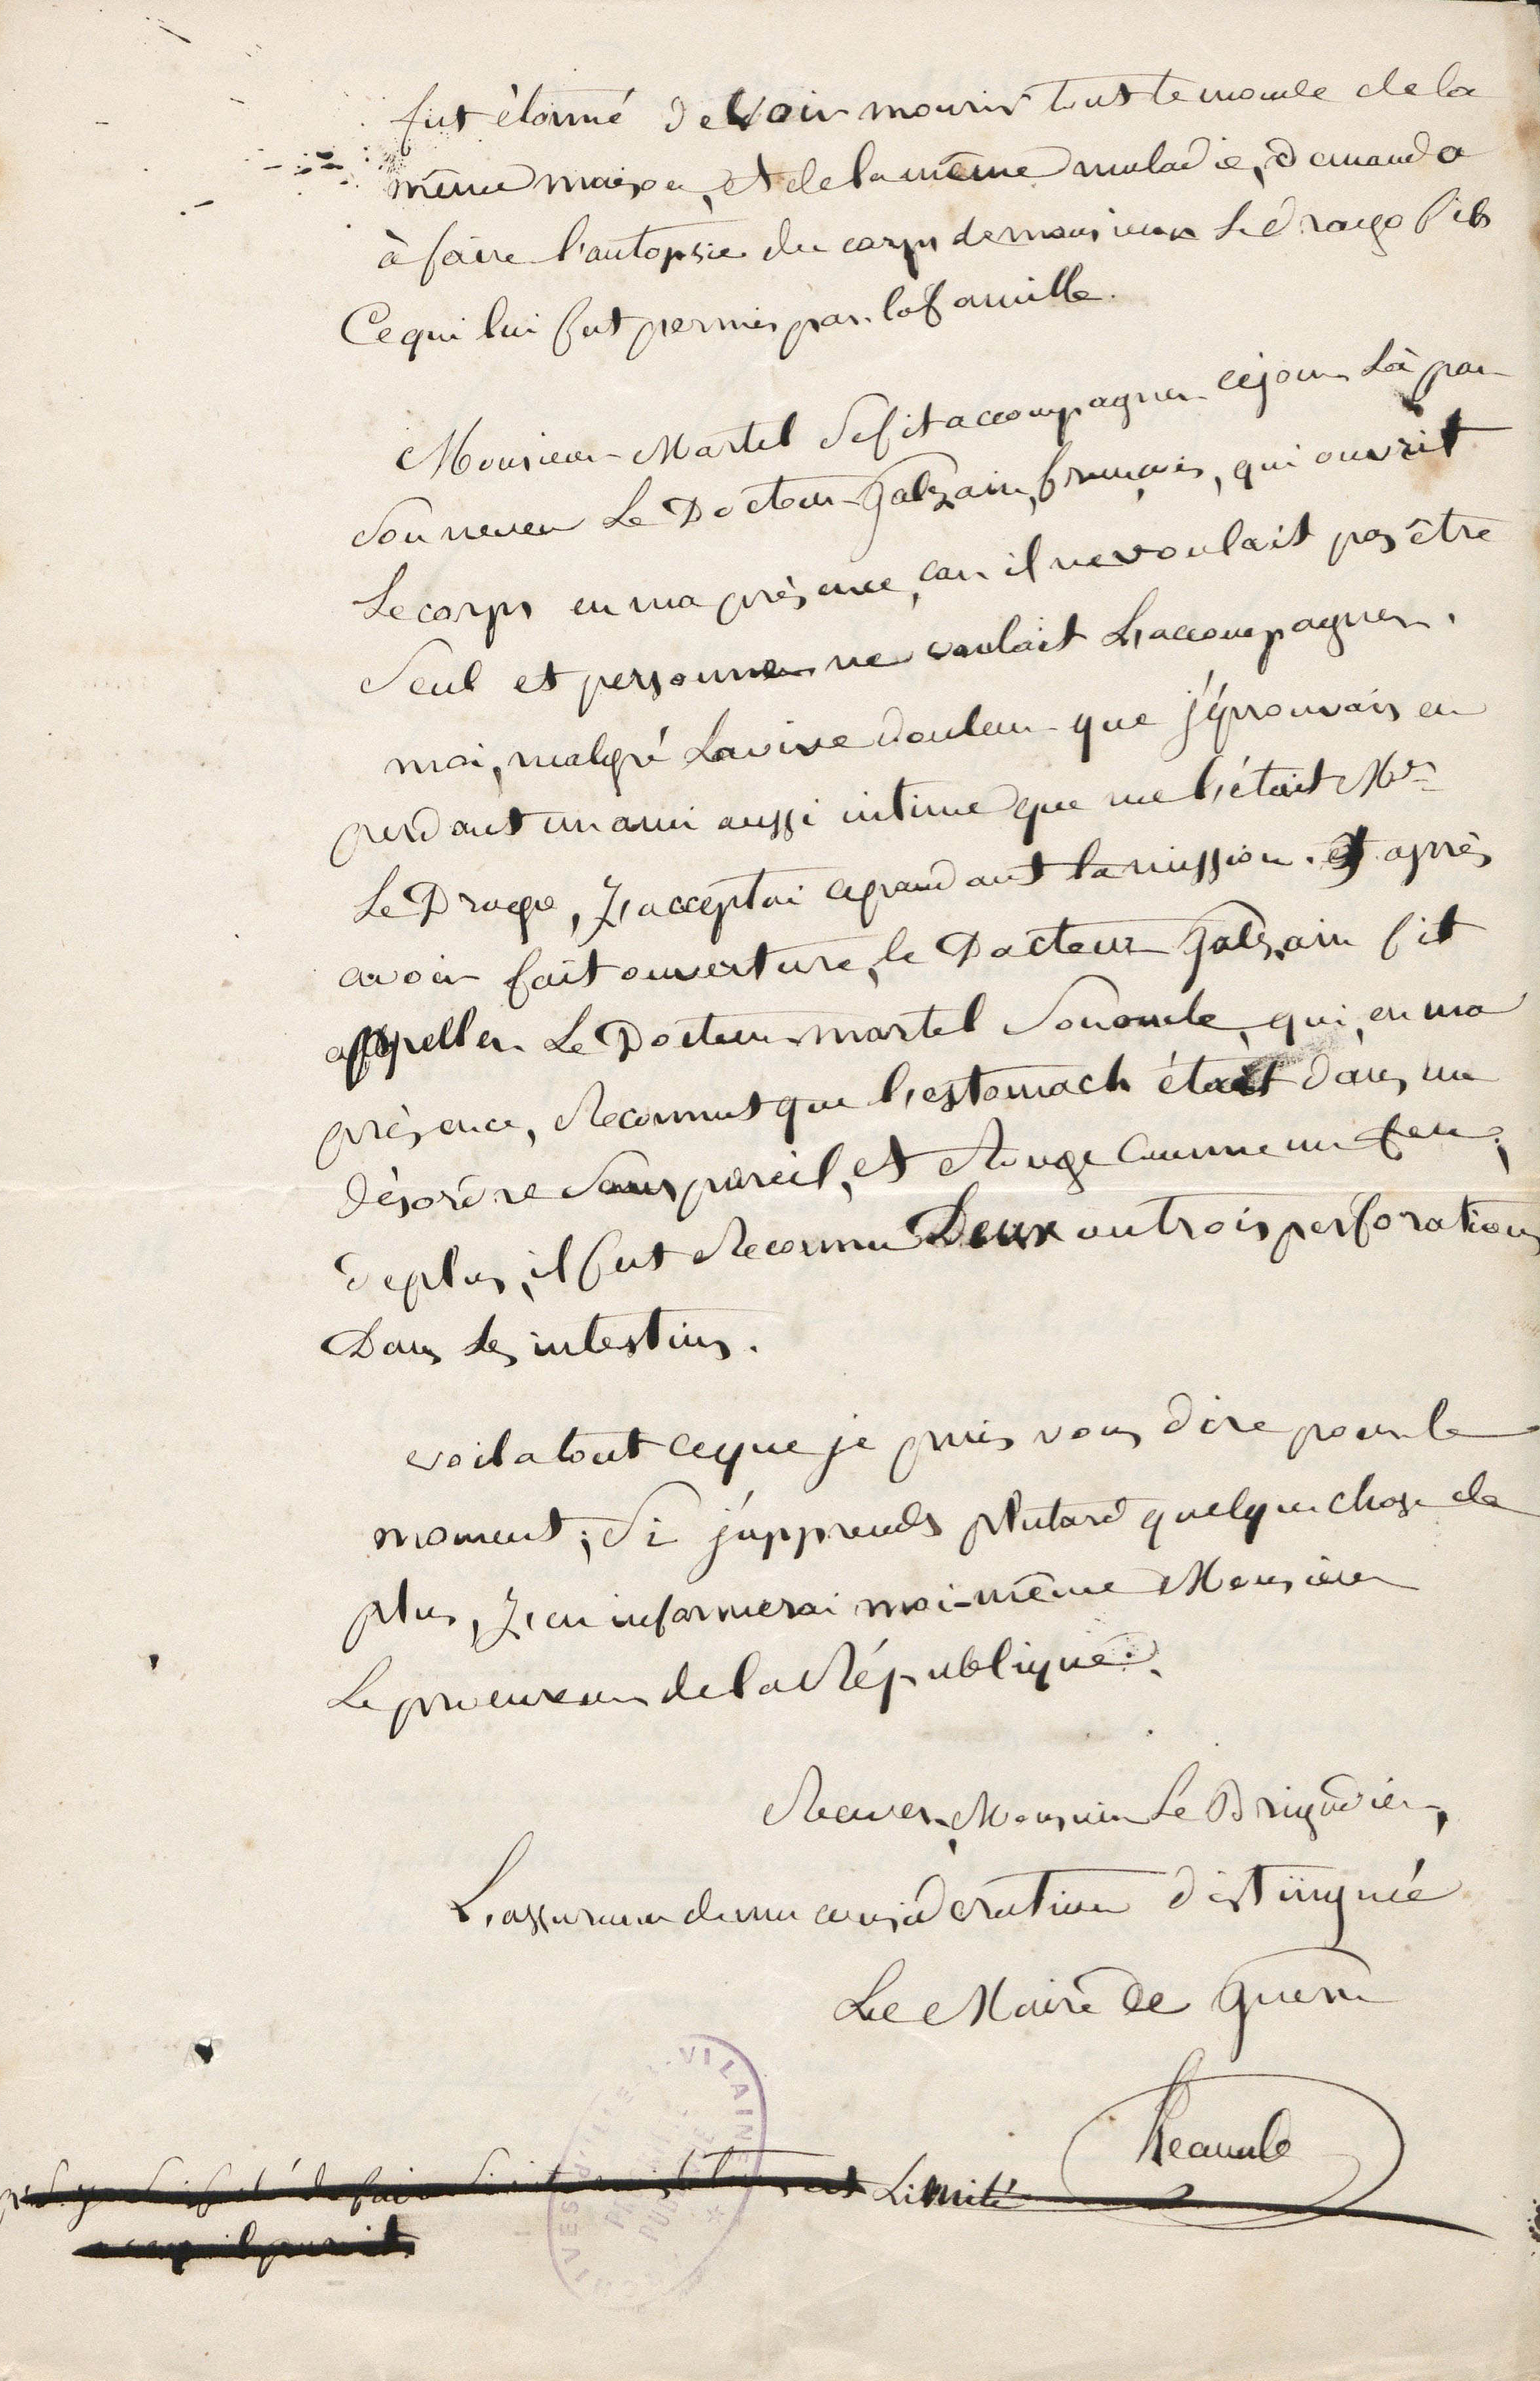 fut étonné de voir mourir tout le monde de la
même maison, et de la même maladie, demanda
à faire l'autopsie du corps de monsieur Le drogo fils
Ce qui lui fut permis par la famille.
Monsieur Martel se fit accompagner ce jour là par
son neveu Le Docteur Galzain, français, qui ouvrit
Le corps en ma présence, car il ne voulait pas être
seul et personne ne voulait L'accompagner.
moi, malgré La vive douleur que j'éprouvais en
perdant un ami aussi intime que me l'était Mr
Le Drogo, J'acceptai cependant la mission. et après
avoir fait ouverture, le Docteur Galzain fit
appeller Le Docteur martel son oncle, qui, en ma
présence, Reconnut que l'estomach était dans un
désordre sans pareil, et Rouge comme un feu;
de plus, il fut Reconnu Deux ou trois perforations
Dans Les intestins.
voila tout ce que je puis vous dire pour le
moment; si j'apprends plutard quelque chose de
plus, J'en informerai moi-même Monsieur
Le procureur de la République.
Recevez, Monsieur Le Brigadier,
L'assurance de ma considération distinguée
Le Maire de Guern
VILAINE